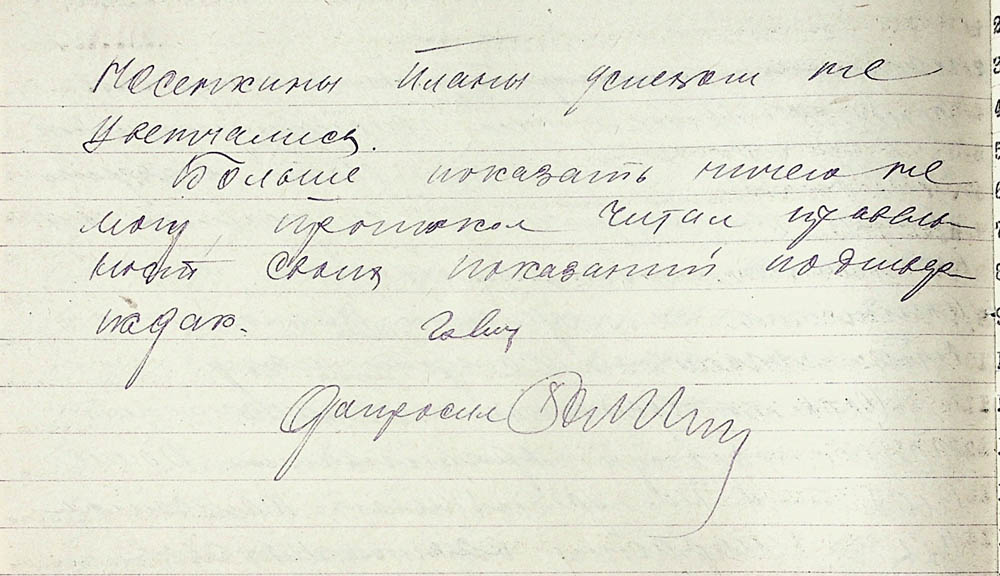 Мосеткины планы успехом не
увенчались.
Больше показать ничего не
могу, протокол читал правиль-
ность своих показаний подтвер-
ждаю.
Допросил